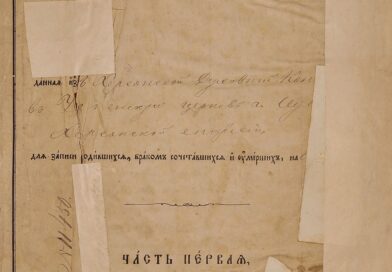 данная изъ Херсонской Духовной Кон
въ Успенскую церковь г. Оде
Херсонской епархіи,
для записи родившихся, бракомъ сочетавшихся и оумершихъ, на
ЧАСТЬ ПЕРВАЯ,